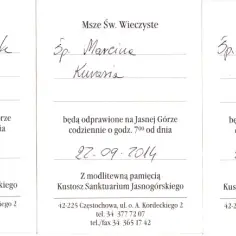 Msze Św. Wieczyste
Śp. Marcina
będą odprawione na Jasnej Górze
codziennie o godz. 7⁰⁰ od dnia
22.09.2014
Z modlitewną pamięcią
Kustosz Sanktuarium Jasnogórskiego
42-225 Częstochowa, ul. o. A. Kordeckiego 2
tel. 34 377 72 07
tel./fax 34 365 17 42